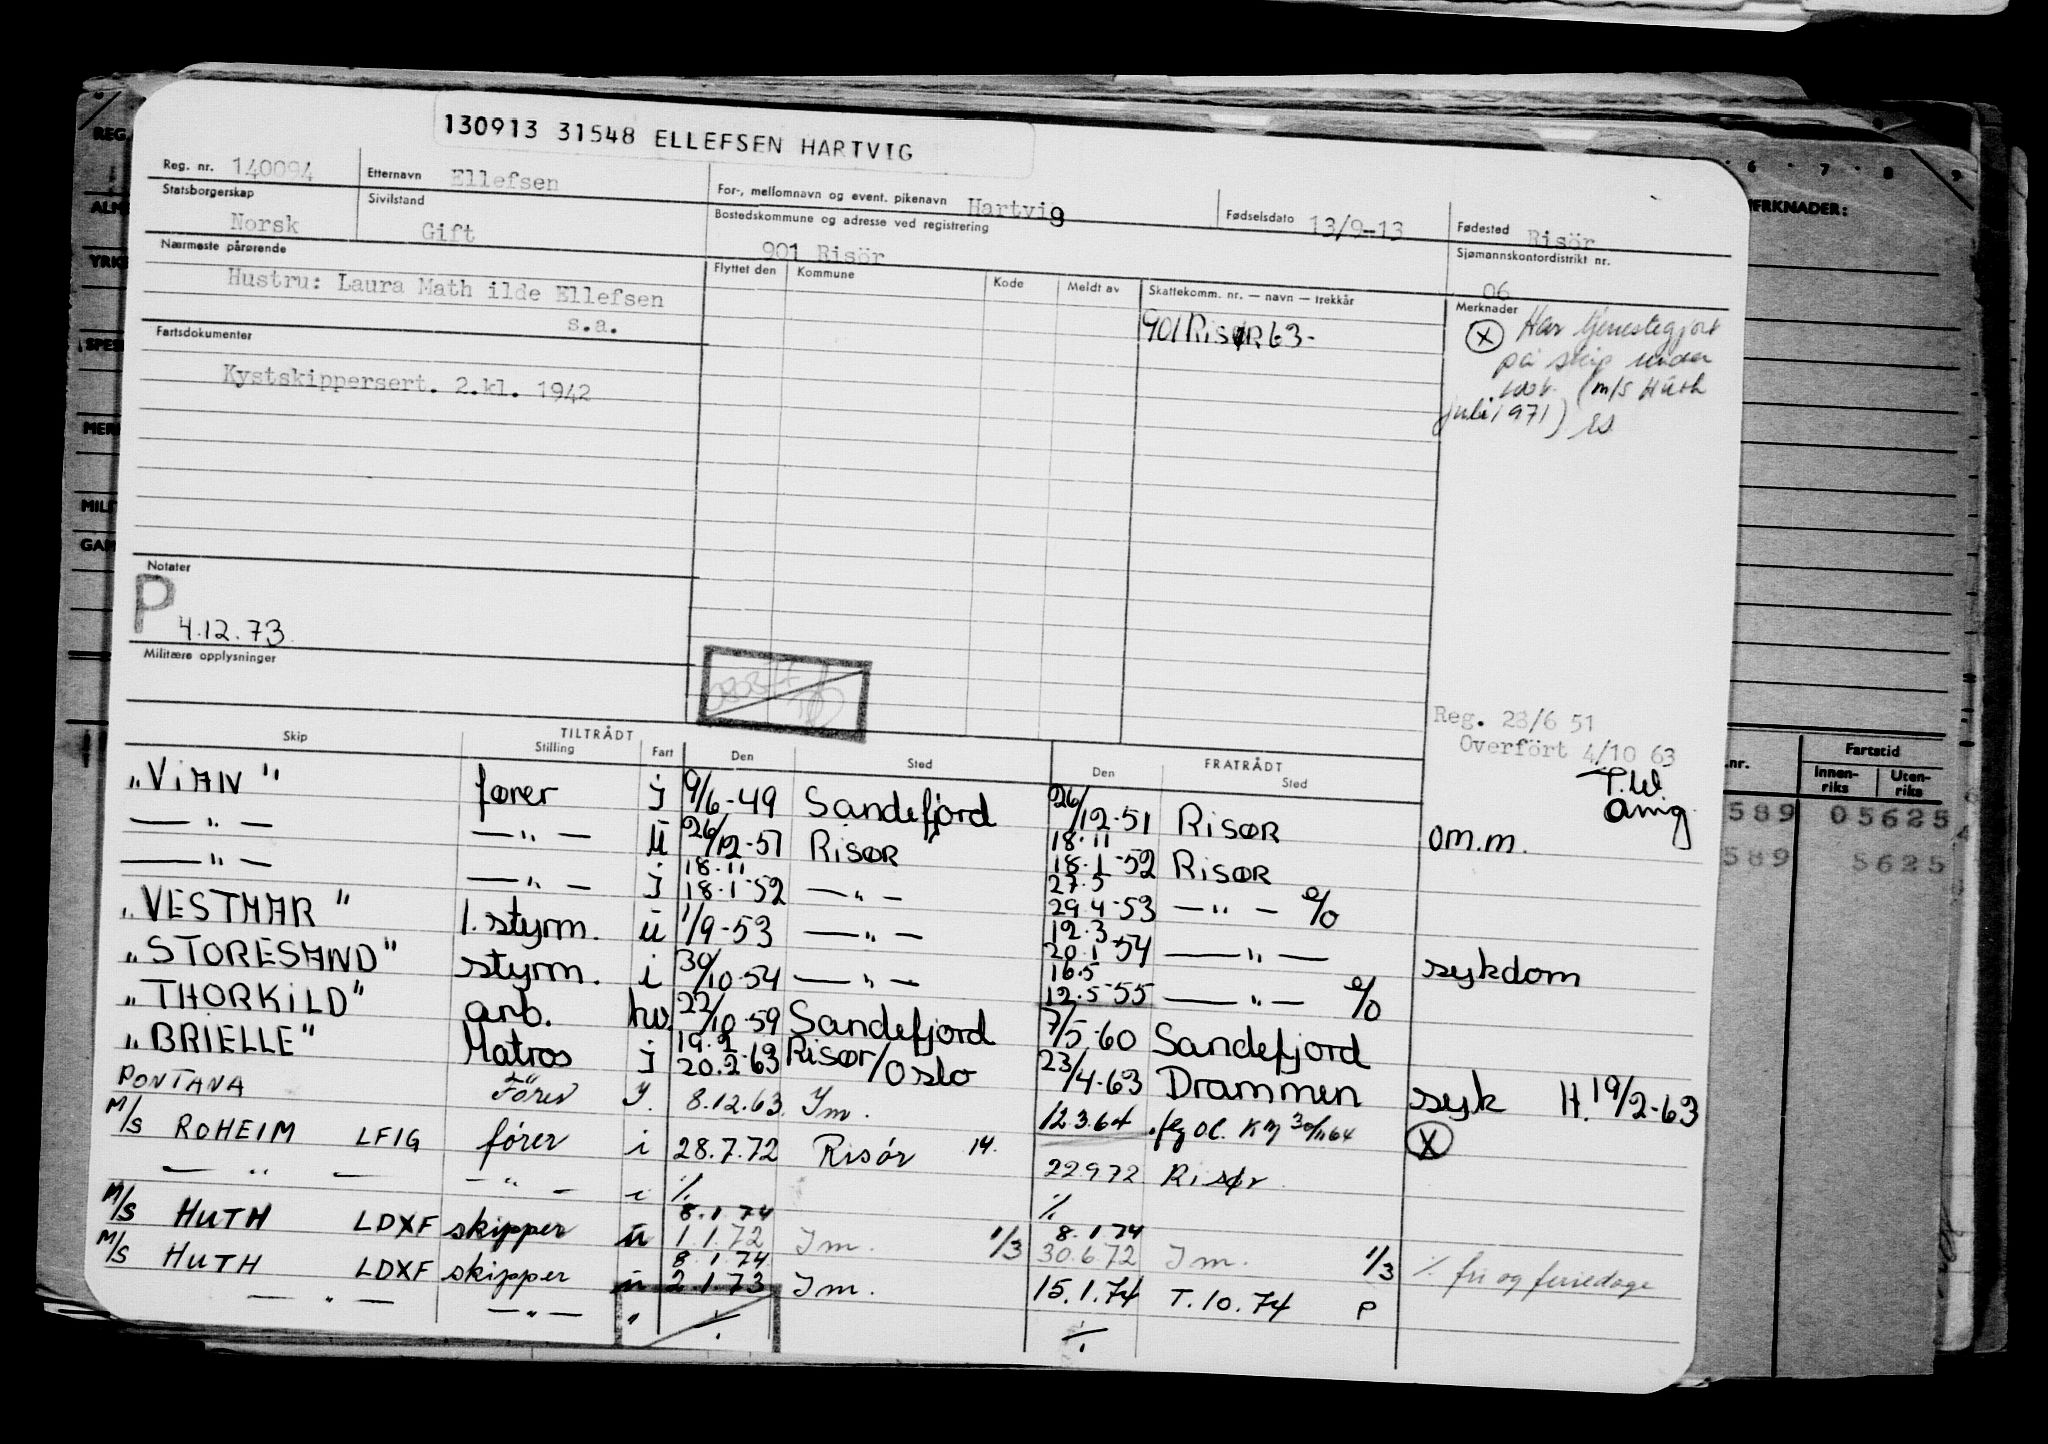 130913 31548 ELLEFSEN HARTVIG
Reg. nr. 140094 Etternavn Ellefsen For-, mellomnavn og event. pikenavn Hartvig Fødselsdato 13/9-13 Fødested Risör
Statsborgerskap Norsk Sivilstand Gift Bostedskommune og adresse ved registrering 901 Risör Sjømannskontordistrikt nr. 06
Nærmeste pårørende Flyttet den Kommune Kode Meldt av Skattekomm. nr. — navn — trekkår Merknader
Hustru: Laura Math ilde Ellefsen
s.a.
901 RISØR 63-
Har tjenestegjort
på skip under
(m/s Huth
juli 1971)
Fartsdokumenter
Kystskippersert. 2.kl. 1942
Notater
P 4.12.73
Militære opplysninger
Reg. 23/6 51
Overfört 4/10 63
TILTRÅDT FRATRÅDT
Skip Stilling Fart Den Sted Den Sted
"VIAN" fører j 9/6-49 Sandefjord 26/12-51 RISØR om.m.
— " — — " — ü 26/12-51 RISØR 18.11 18.1-52 RISØR
— " — — " — j 18.11 18.1-52 — " — 27.5 29.4-53 — " — %
"VESTMAR" 1. styrm. ü 1/9-53 — " — 12.3 20.1-54 — " — sykdom
"STORESAND" styrm. i 30/10-54 — " — 16.5 12.5-55 — " — %
"THORKILD" arb. hv. 22/10-59 Sandefjord 7/5-60 Sandefjord
"BRIELLE" Matros j 19.2 20.2-63 Risør/Oslo 23/4-63 Drammen syk H. 19/2-63
PONTANA Förer J. 8.12.63 Jm. 12.3.64
M/S ROHEIM LFIG fører i 28.7.72 Risør 14. 22972 Risør
— " — — " — i % %
M/S HUTH LDXF skipper u 8.1.74 1.1.72 Jm. 1/3 8.1.74 30.6.72 Jm. 1/3 % fri og feriedage
M/S HUTH LDXF skipper u 8.1.74 2.1.73 Jm. 15.1.74 T.10.74 P
— " — — " — " % %
6 7 8 9
MERKNADER:
Fartstid
Innen-riks Uten-riks
589 05625
589 5625